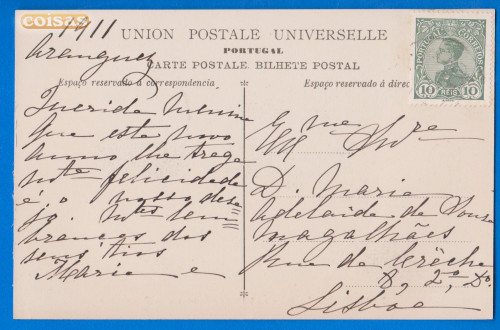 coisas
1911
Aranguez
UNION POSTALE UNIVERSELLE
PORTUGAL
CARTE POSTALE. BILHETE POSTAL
Espaço reservado á correspondencia
Espaço reservado á direc
PORTUGAL CORREIOS
10 REIS 10
Querida menina
que este novo
anno lhe traga
mtas felicidades
é o nosso dese
jo. Mtas lem
branças dos
seus tios
Maria e
Exma Snra
D. Maria
Adelaide de Sousa
Magalhães
Rua da Créche
8 2º, Dº
Lisboa